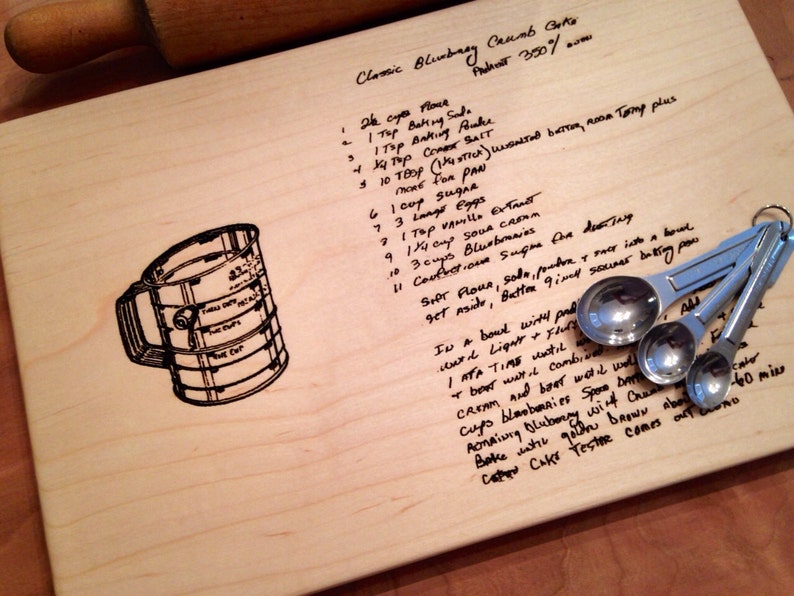 Classic Blueberry Crumb Cake
Preheat 350° oven
1 2½ cups Flour
2 1 Tsp Baking Soda
3 1 Tsp Baking Powder
4 ¼ Tsp Coarse Salt
5 10 TBSP (1¼ stick) unsalted butter, room Temp plus
more for pan
6 1 cup sugar
7 3 Large Eggs
8 1 Tsp Vanilla Extract
9 1 ¼ cup sour cream
10 3 cups Blueberries
11 Confectioner sugar for dusting
Sift flour, soda, powder + salt into a bowl
set aside, Butter 9 inch square baking pan
In a bowl with
until Light + add
1 at a Time until
+ beat until combined
cream and beat until
cups blueberries spread
remaining blueberry with cake
Bake until golden brown 60 min
Cake Tester comes out
THE CUP